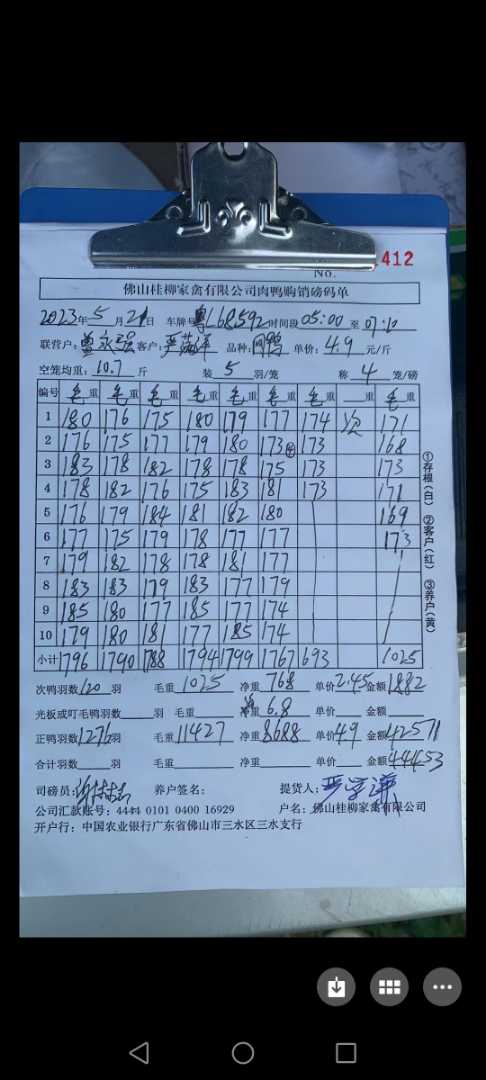 No. 412
佛山桂柳家禽有限公司肉鸭购销磅码单
2023年5月21日 车牌号粤L68592时间段05:00至07:10
联营户: 客户: 品种: 单价:4.9元/斤
空笼均重:10.7斤 装5羽/笼 称4笼/磅
编号 毛重 毛重 毛重 毛重 毛重 毛重 毛重 重 毛重
1 180 176 175 180 179 177 174 次 171
2 176 175 177 179 180 173 173 168
3 183 178 182 178 178 175 173 173
4 178 182 176 175 183 181 173 171
5 176 179 184 181 182 180 169
6 177 175 179 178 177 177 173
7 179 182 178 178 181 177
8 183 183 179 183 177 179
9 185 180 177 185 177 174
10 179 180 181 177 185 174
小计 1796 1790 1788 1794 1799 1767 693 1025
次鸭羽数120羽 毛重1025 净重768 单价2.45金额1882
光板或叮毛鸭羽数 羽 毛重 净重6.8 单价 金额
正鸭羽数1276羽 毛重11427 净重8688 单价4.9金额42571
合计羽数 羽 毛重 净重 单价 金额44453
司磅员: 养户签名: 提货人:
公司汇款账号:4444 0101 0400 16929 户名:佛山桂柳家禽有限公司
开户行:中国农业银行广东省佛山市三水区三水支行
①存根(白) ②客户(红) ③养户(黄)